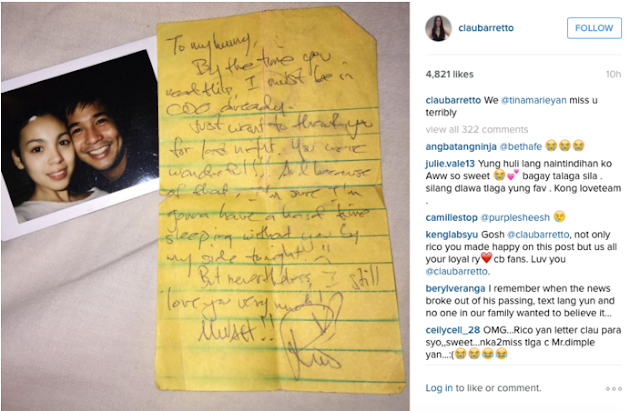 To my hunny,
By the time you
read this, I must be in
CDO already.
Just want to thank you
for last night. You were
wonderful!! And because
of that, I'm sure I'm
gonna have a hard time
sleeping without you by
my side tonight!!
But nevertheless, I still
love you very much!
claubarretto
FOLLOW
4,821 likes
10h
claubarretto We @tinamarieyan miss u
terribly
view all 322 comments
angbatangninja @bethafe 😭😭😭
julie.vale13 Yung huli lang naintindihan ko
Aww so sweet 😭💕 bagay talaga sila .
silang dlawa tlaga yung fav . Kong loveteam
.
camillestop @purplesheesh 😢
kenglabsyu Gosh @claubarretto, not only
rico you made happy on this post but us all
your loyal ry❤️cb fans. Luv you
@claubarretto.
berylveranga I remember when the news
broke out of his passing, text lang yun and
no one in our family wanted to believe it...
ceilycell_28 OMG...Rico yan letter clau para
syo,,sweet...nka2miss tlga c Mr.dimple
yan...:(😭😭😭😭
Log in to like or comment.